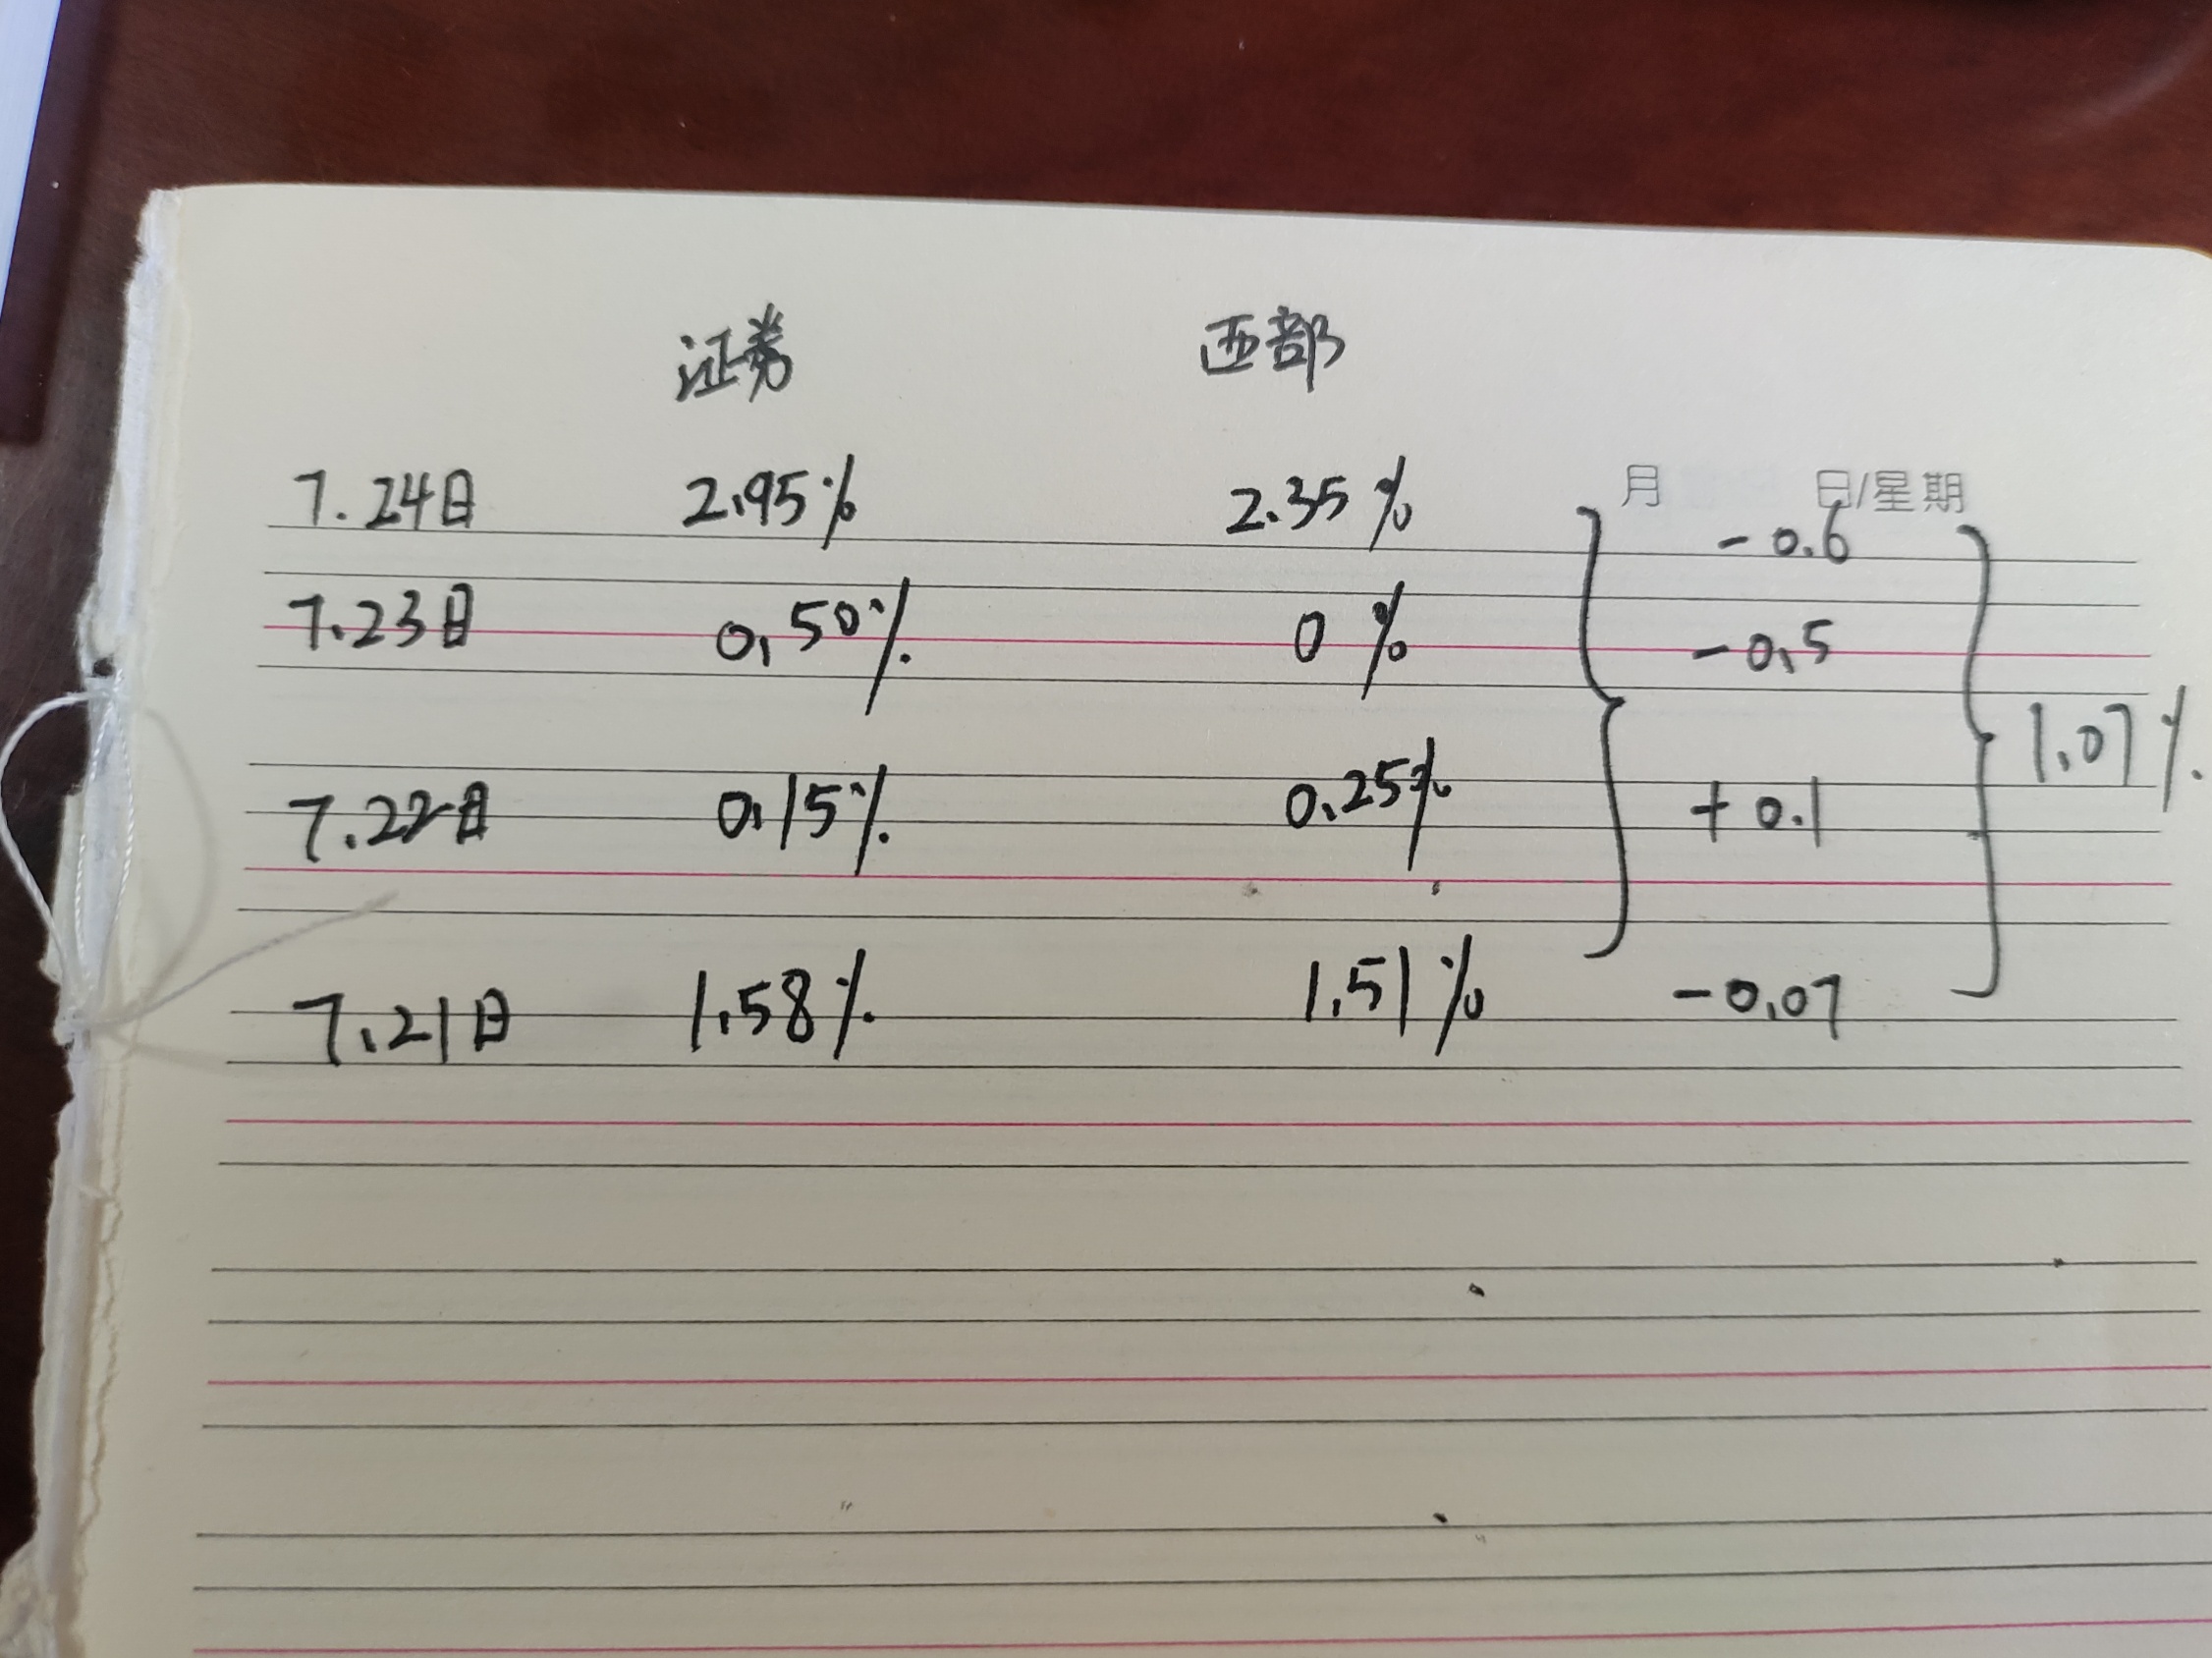 证券 西部
月 日/星期
7.24日 2.95% 2.35% -0.6
7.23日 0.50% 0% -0.5
1.07%
7.22日 0.15% 0.25% +0.1
7.21日 1.58% 1.51% -0.07